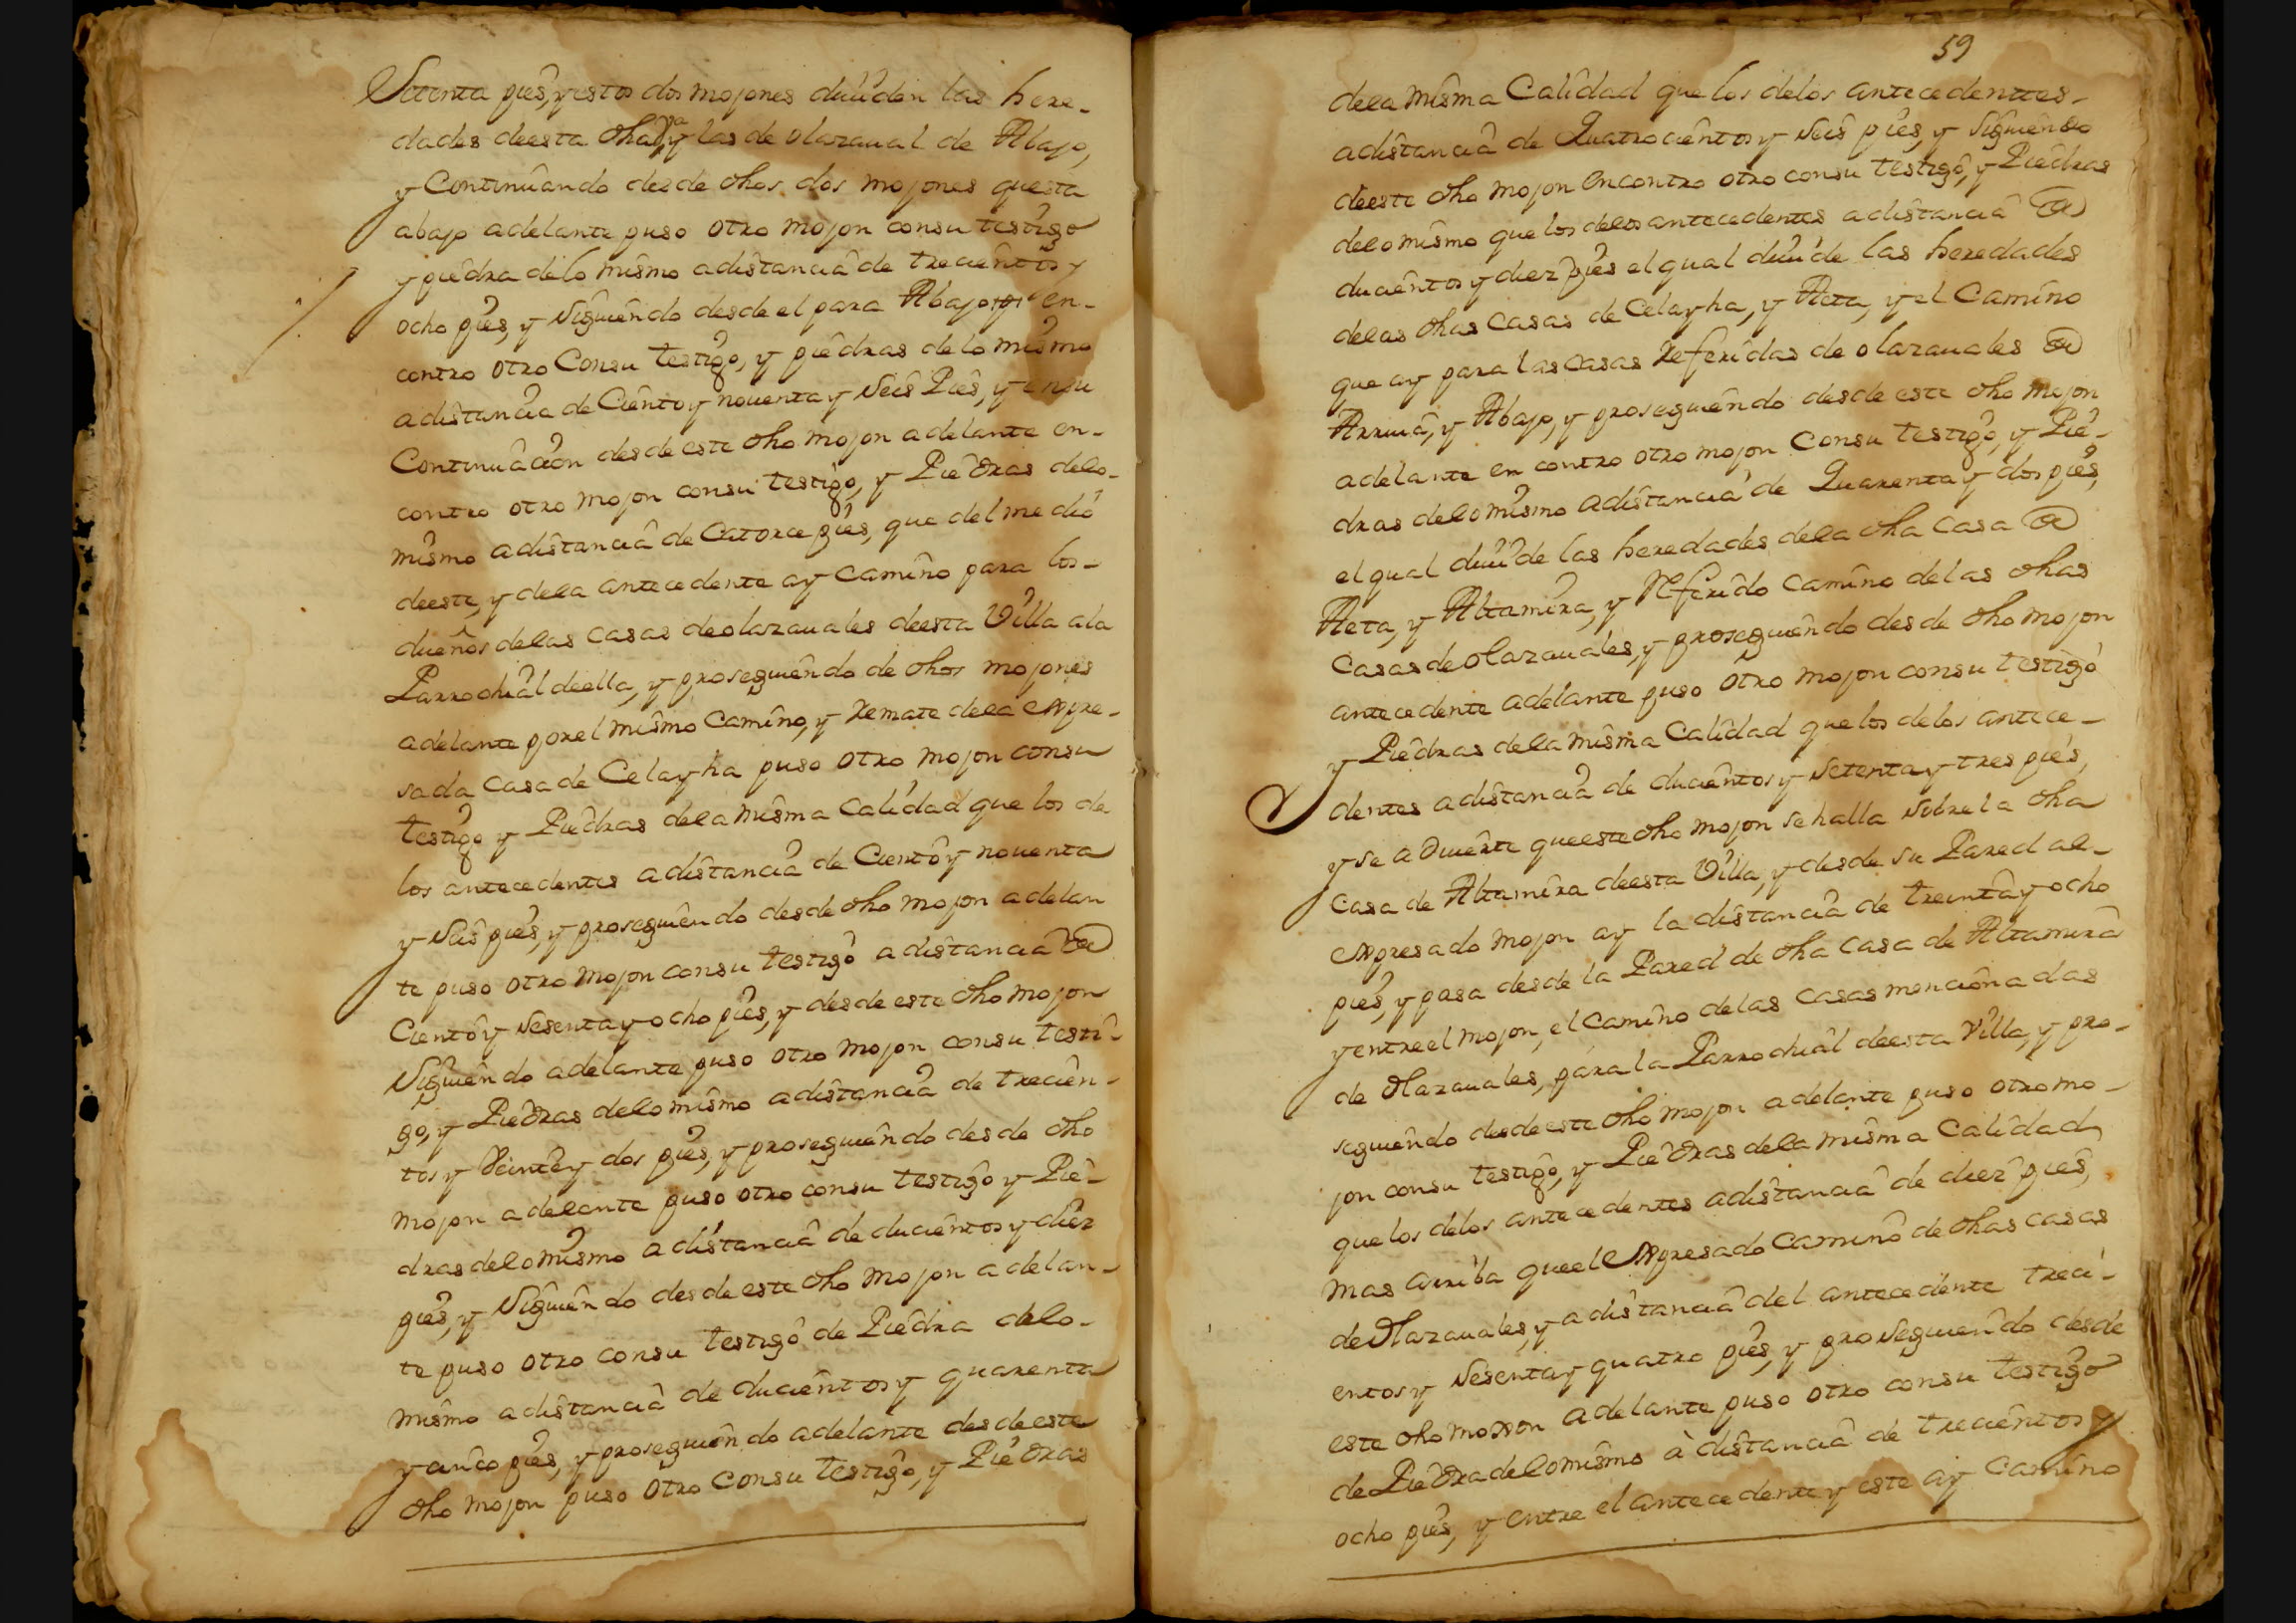 Setenta pies, y estos dos mojones diuiden las here-
dades deesta dha Vª y las de olazaual de Abajo,
y Continuando desde dhos dos mojones questa
abajo adelante puso otro mojon consu testigo
y piedra delo mismo adistancia de trecientos y
ocho pies, y siguiendo desde el para Abajo en-
contro otro Consu testigo, y piedras delo mismo
adistancia de Ciento y nouenta y seis Pies, y ensu
Continuacion desde este dho mojon adelante en-
contro otro mojon consu testigo, y Piedras delo-
mismo adistancia de Catorce pies, que del medio
deeste, y dela antecedente ay camino para los-
dueños delas casas deolazauales deesta Villa ala
Parrochial deella, y prosiguiendo de dhos mojones
adelante porel mismo Camino, y remate dela expre-
sada casa de Celayha puso otro mojon consu
testigo y Piedras dela misma calidad que los de
los antecedentes adistancia de Ciento y nouenta
y seis pies, y prosiguiendo desde dho mojon adelan
te puso otro mojon consu testigo adistancia de
Ciento y sesenta y ocho pies, y desde este dho mojon
siguiendo adelante puso otro mojon consu testi-
go, y Piedras delo mismo adistancia de trecien-
tos y Veinte y dos pies, y prosiguiendo desde dho
mojon adelante puso otro consu testigo y Pie-
dras delo mismo adistancia de ducientos y diez
pies, y siguiendo desde este dho mojon adelan-
te puso otro consu testigo de Piedra delo-
mismo adistancia de ducientos y quarenta
y cinco pies, y prosiguiendo adelante desde este
dho mojon puso otro consu testigo, y Piedras
59
dela misma Calidad que los delos antecedenttes-
adistancia de Quatrocientos y seis pies, y siguiendo
deeste dho mojon encontro otro consu testigo, y Piedras
delo mismo que los delos antecedentes adistancia de
ducientos y diez pies el qual diuide las heredades
delas dhas casas de Celayha, y Aeta, y el Camino
que ay para las casas referidas de olazauales de
Arriua, y Abajo, y prosiguiendo desde este dho mojon
adelante en contro otro mojon consu testigo, y Pie-
dras delo mismo adistancia de Quarenta y dos pies,
el qual diuide las heredades dela dha casa de
Aeta, y Altamira, y referido camino delas dhas
casas de olazauales, y prosiguiendo desde dho mojon
antecedente adelante puso otro mojon consu testigo
y Piedras dela misma Calidad que los delos antece-
dentes adistancia de ducientos y setenta y tres pies,
y se aduierte queeste dho mojon se halla sobre la dha
casa de Altamira deesta Villa, y desde su Pared al-
expresado mojon ay la distancia de treinta y ocho
pies, y pasa desde la Pared de dha casa de Altamira
y entre el mojon, el camino delas casas mencionadas
de olazauales, para la Parrochial deesta Villa, y pro-
seguiendo desde este dho mojon adelante puso otro mo-
jon consu testigo, y Piedras dela misma Calidad
que los delos antecedentes adistancia de diez pies,
mas arriba queel expresado camino de dhas casas
de olazauales, y adistancia del antecedente treci-
entos y sesenta y quatro pies, y prosiguiendo desde
este dho mojon adelante puso otro consu testigo
de Piedra delo mismo à distancia de trecientos y
ocho pies, y entre el antecedente y este ay Camino